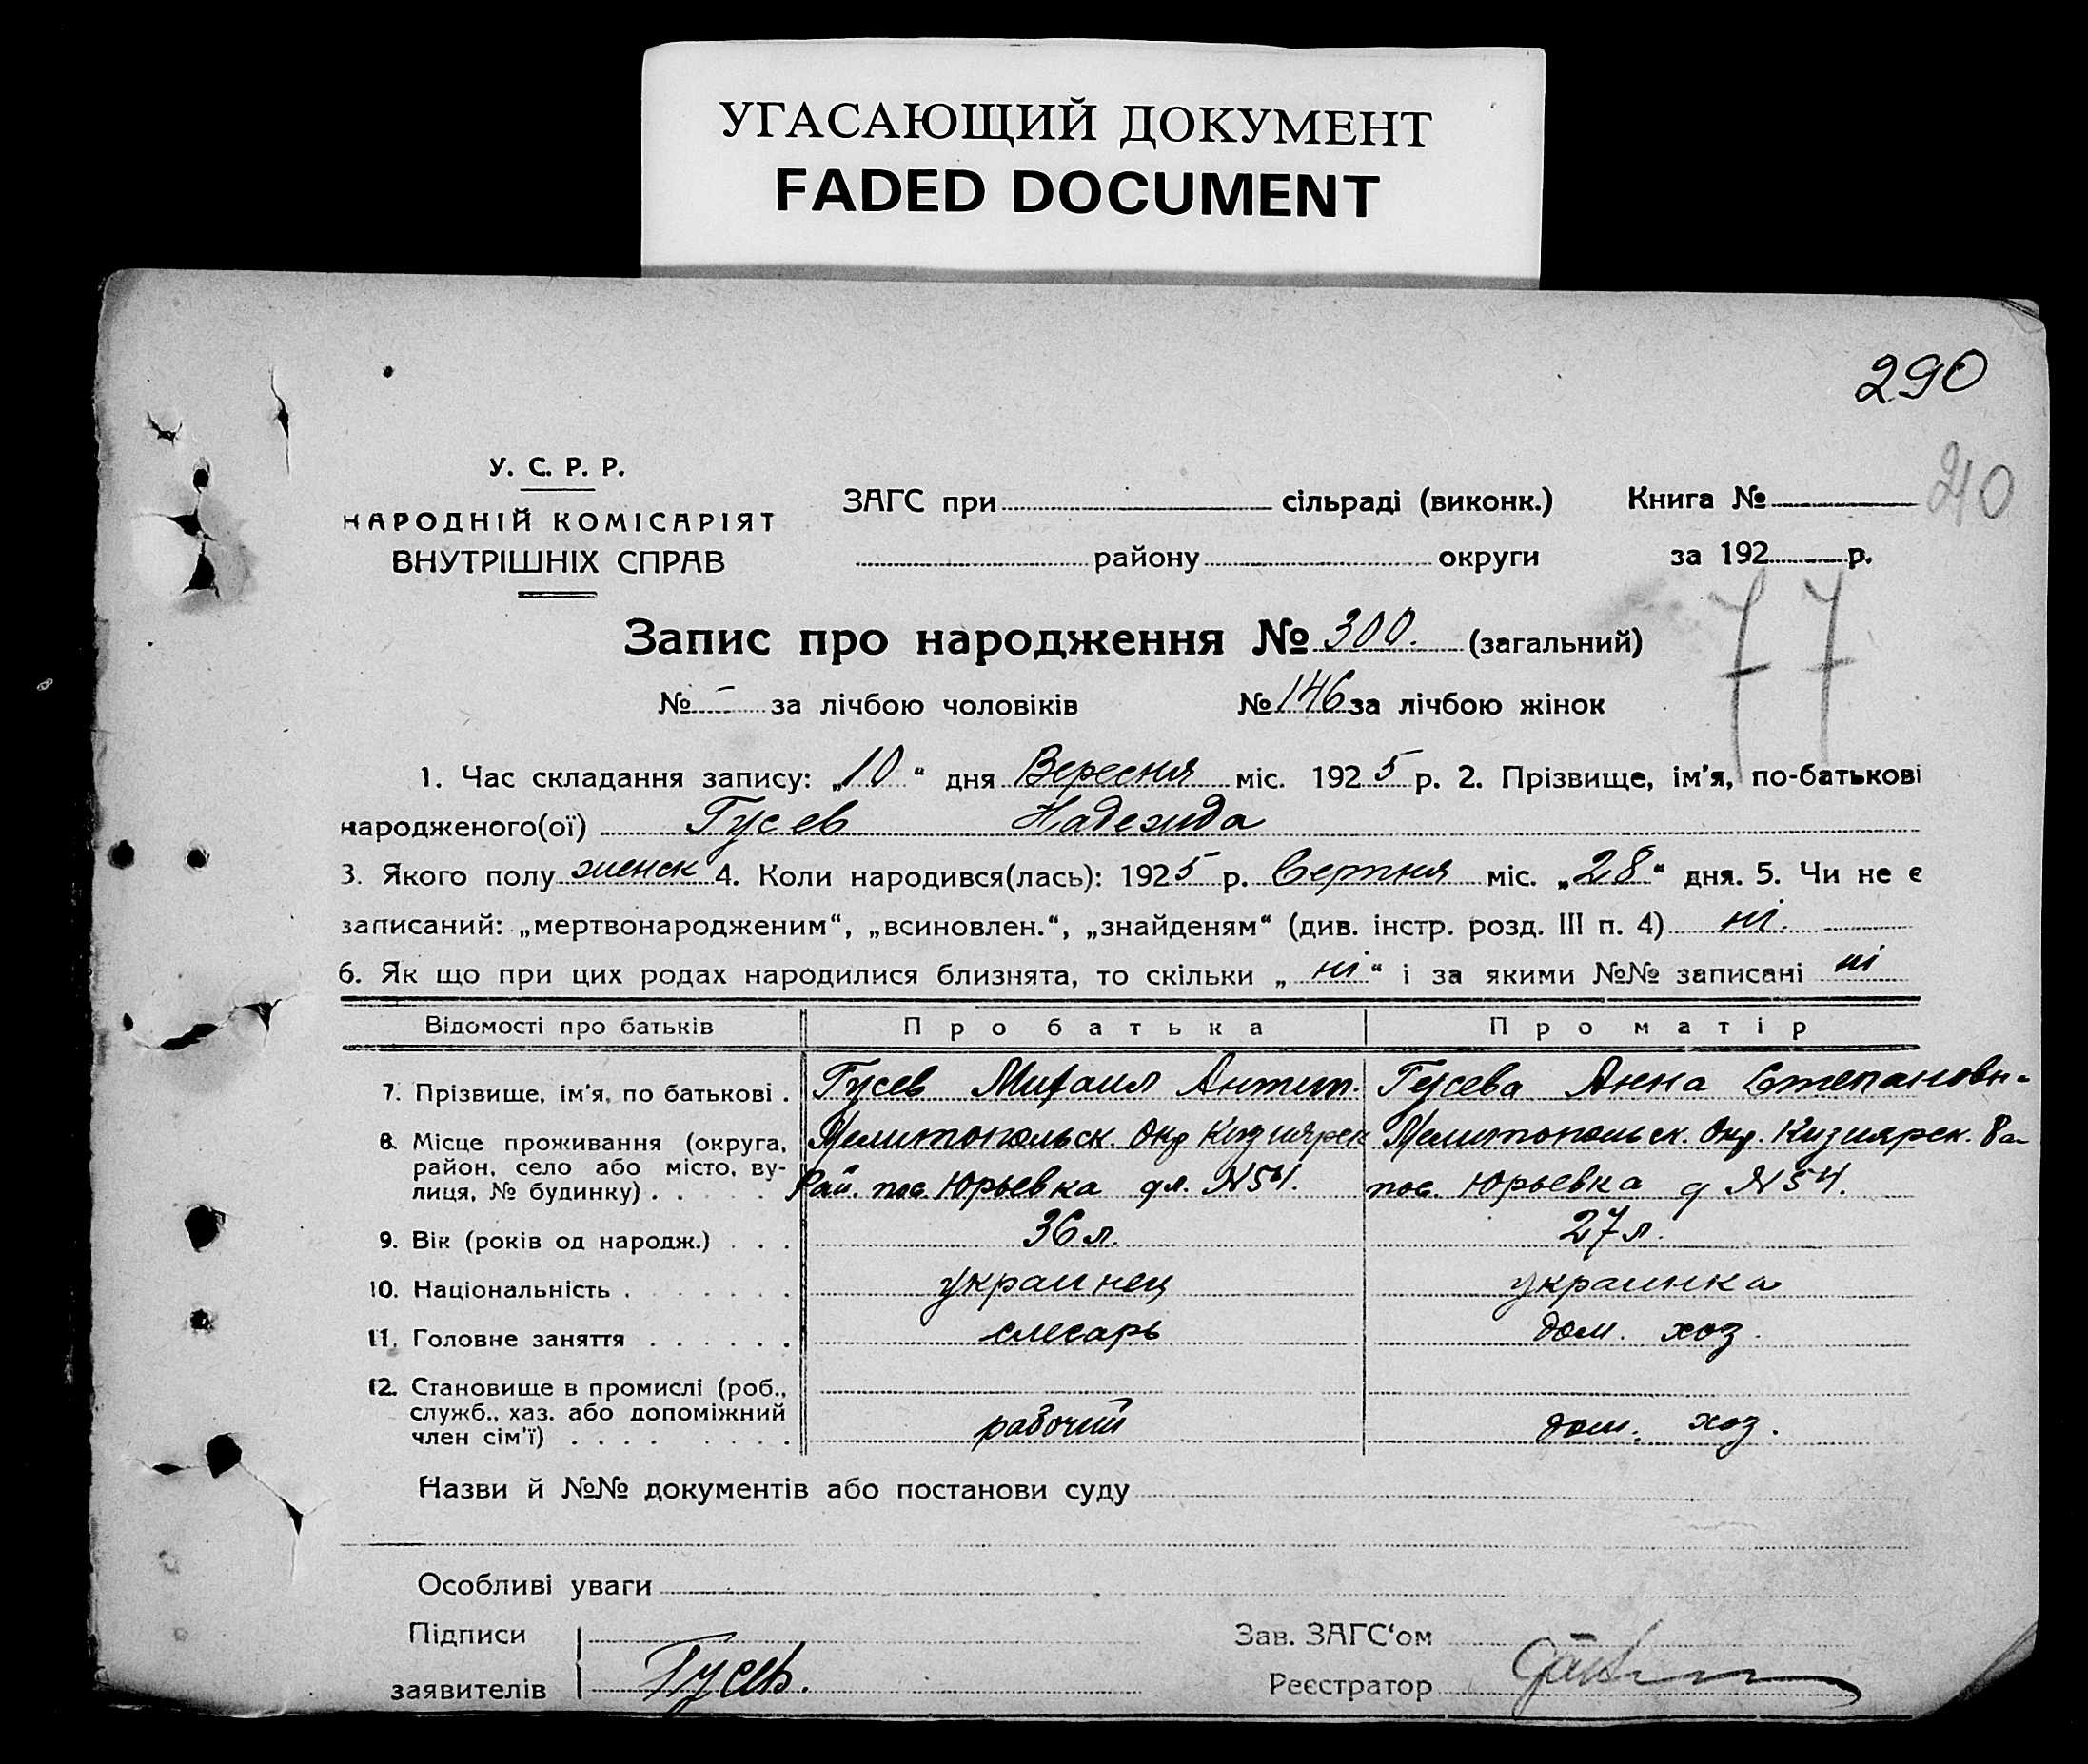 УГАСАЮЩИЙ ДОКУМЕНТ
FADED DOCUMENT
290
У. С. Р. Р.
НАРОДНІЙ КОМІСАРІЯТ
ВНУТРІШНІХ СПРАВ
ЗАГС при сільраді (виконк.)
району округи
Книга №
за 192 р.
77
Запис про народження № 300. (загальний)
№ - за лічбою чоловіків № 146 за лічбою жінок
1. Час складання запису: „10“ дня Вересня міс. 1925 р. 2. Прізвище, ім'я, по-батькові
народженого(ої) Гусев Надежда
3. Якого полу женск 4. Коли народився(лась): 1925 р. Серпня міс. „28“ дня. 5. Чи не є
записаний: „мертвонародженим“, „всиновлен.“, „знайденям“ (див. інстр. розд. III п. 4) ні.
6. Як що при цих родах народилися близнята, то скільки „ні“ і за якими №№ записані ні
Відомості про батьків Про батька Про матір
7. Прізвище, ім'я, по батькові . Гусев Михаил Антип. Гусева Анна Степановн-
8. Місце проживання (округа, Мелитопольск. Окр Кизиярск Мелитопольск. Окр. Кизиярск. Ра-
район, село або місто, ву-
лиця, № будинку) . . . . . Рай. пос. Юрьевка дл. №54. пос. Юрьевка д №54.
9. Вік (років од народж.) . . . 36 л. 27 л.
10. Національність . . . . . . . украинец украинка
11. Головне заняття . . . . . . слесарь дом. хоз.
12. Становище в промислі (роб.,
служб., хаз. або допоміжний
член сім'ї) . . . . . . . . рабочий дом. хоз.
Назви й №№ документів або постанови суду
Особливі уваги
Підписи
заявителів Гусев.
Зав. ЗАГС'ом
Реєстратор